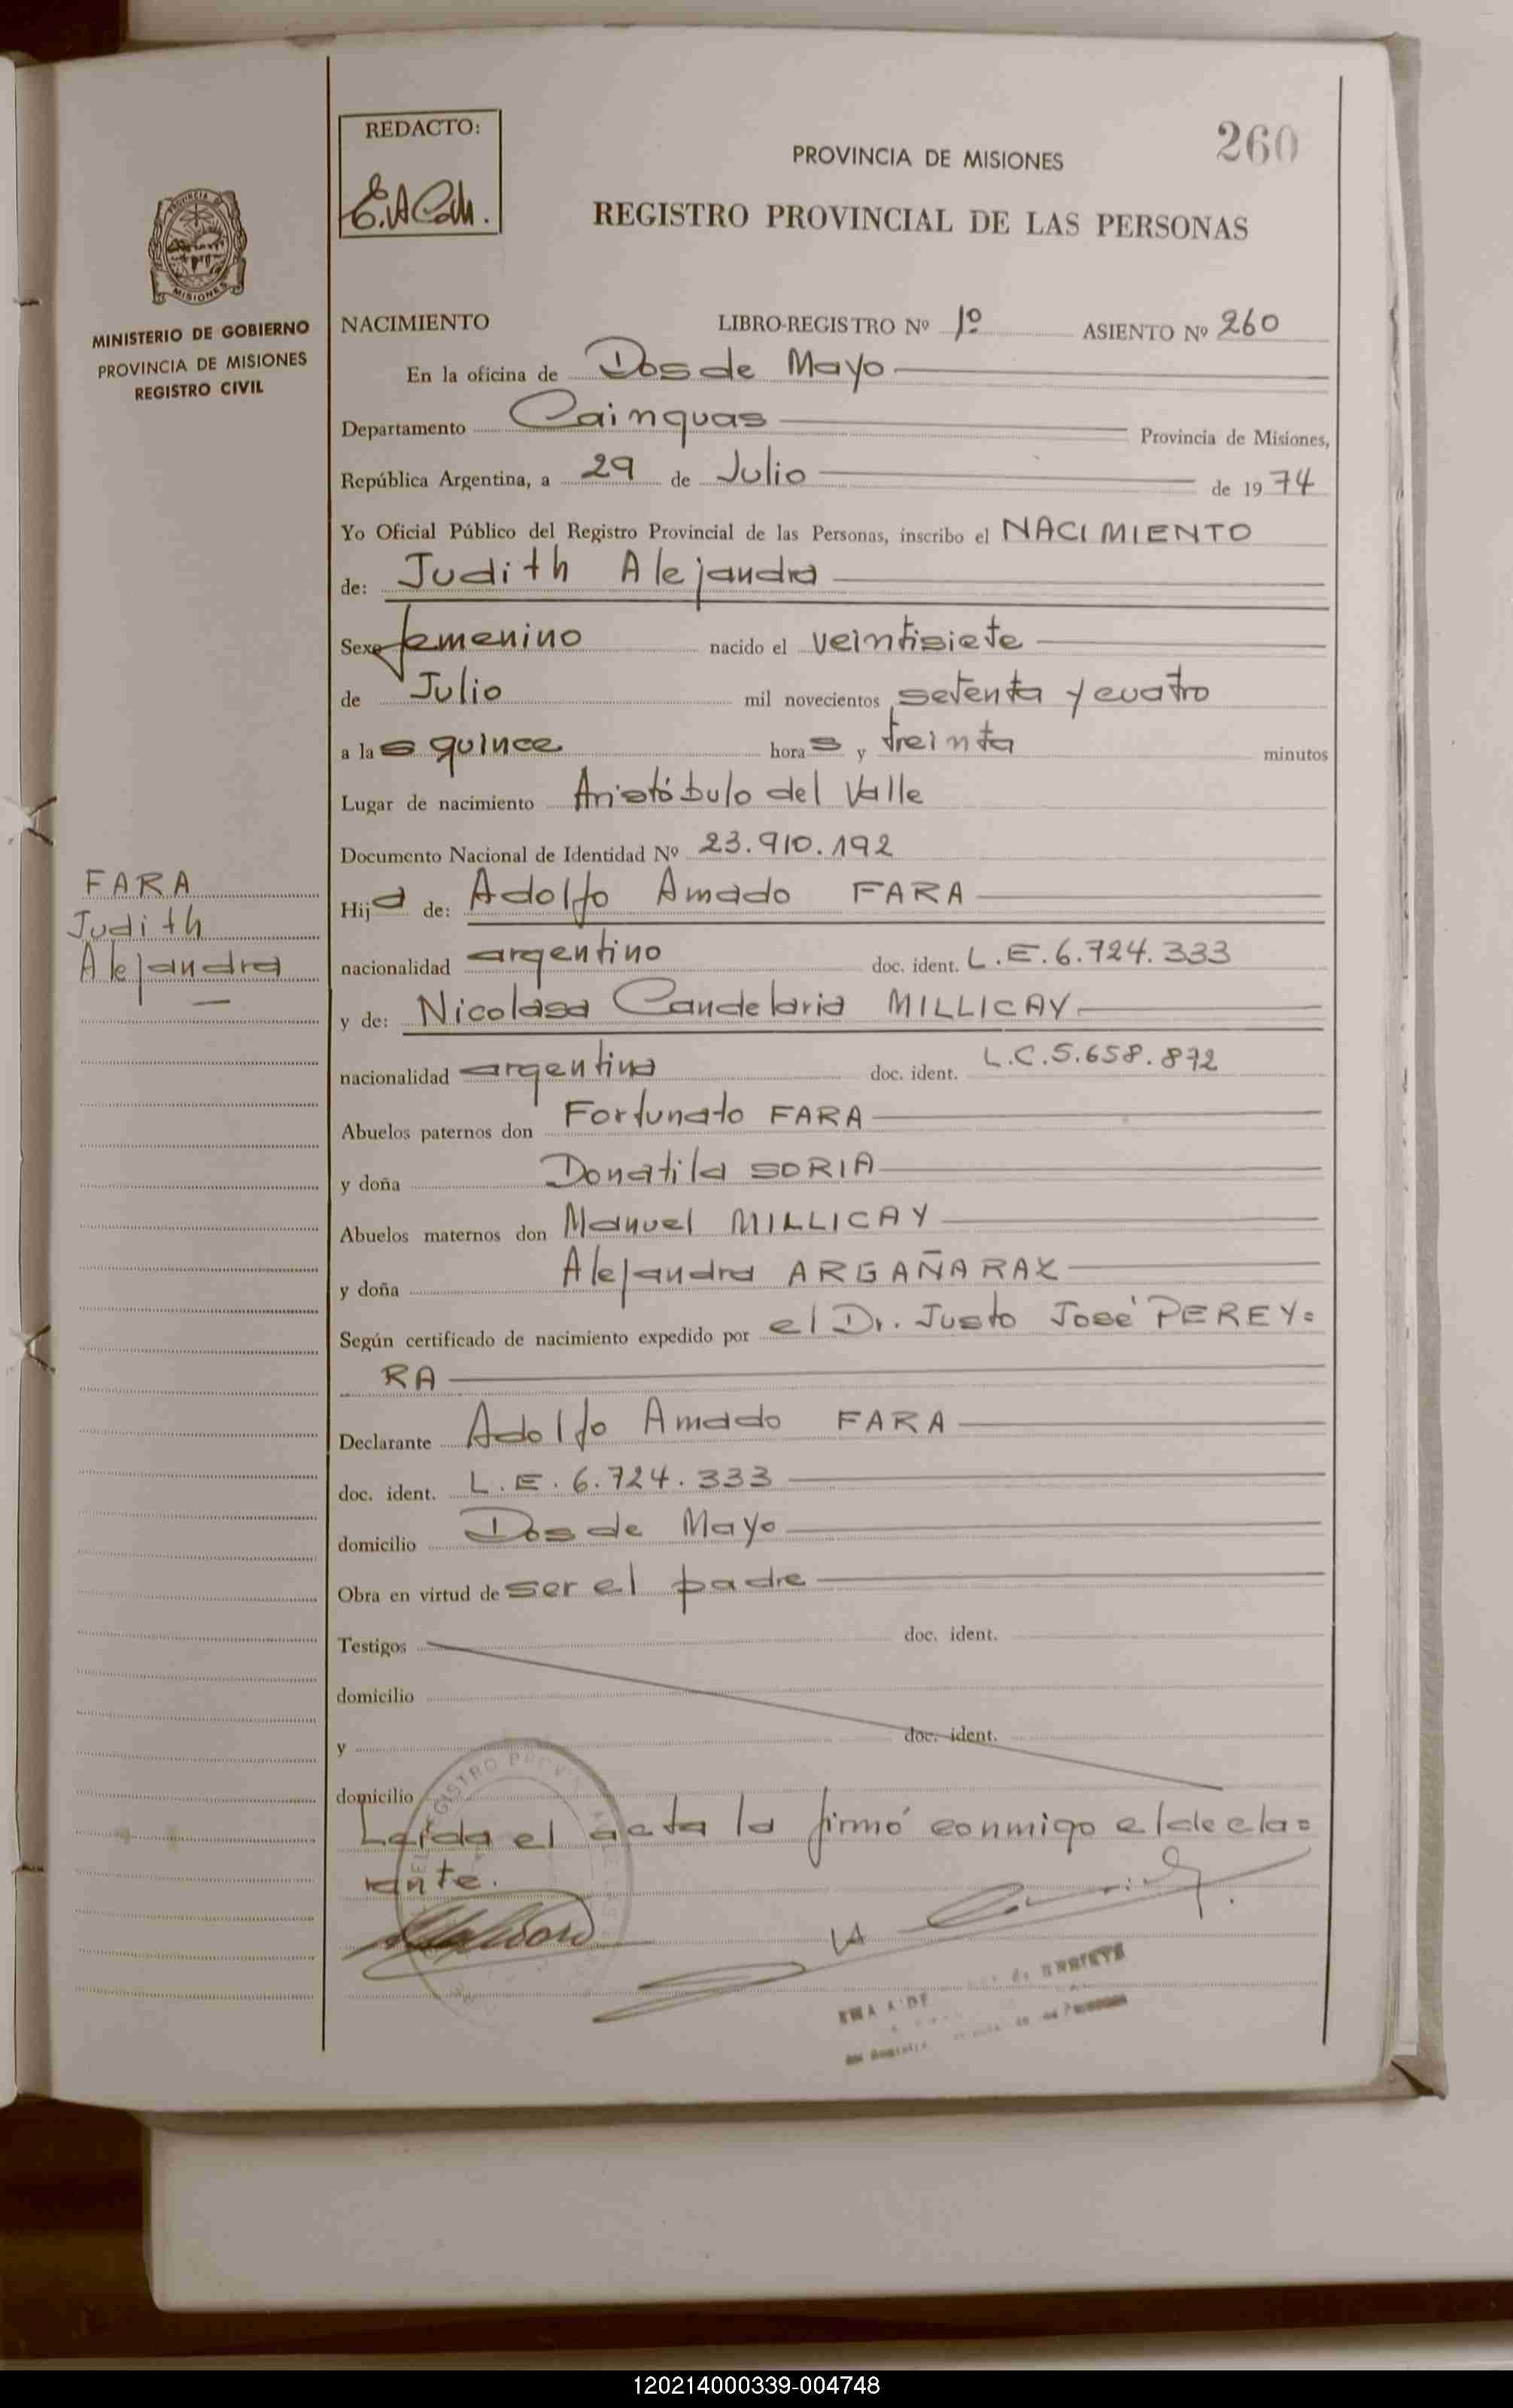 REDACTO:
260
PROVINCIA DE MISIONES
REGISTRO PROVINCIAL DE LAS PERSONAS
PROVINCIA DE
MISIONES
MINISTERIO DE GOBIERNO
PROVINCIA DE MISIONES
REGISTRO CIVIL
NACIMIENTO LIBRO-REGISTRO Nº 1º ASIENTO Nº 260
En la oficina de Dos de Mayo
Departamento Cainguas Provincia de Misiones,
República Argentina, a 29 de Julio de 1974
Yo Oficial Público del Registro Provincial de las Personas, inscribo el NACIMIENTO
de: Judith Alejandra
Sexo femenino nacido el veintisiete
de Julio mil novecientos setenta y cuatro
a las quince horas y treinta minutos
Lugar de nacimiento Aristóbulo del Valle
Documento Nacional de Identidad Nº 23.910.192
FARA
Judith
Alejandra
Hija de: Adolfo Amado FARA
nacionalidad argentino doc. ident. L.E. 6.724.333
y de: Nicolasa Candelaria MILLICAY
nacionalidad argentina doc. ident. L.C. 5.658.872
Abuelos paternos don Fortunato FARA
y doña Donatila SORIA
Abuelos maternos don Manuel MILLICAY
y doña Alejandra ARGAÑARAZ
Según certificado de nacimiento expedido por el Dr. Justo José PEREY=
RA
Declarante Adolfo Amado FARA
doc. ident. L.E. 6.724.333
domicilio Dos de Mayo
Obra en virtud de ser el padre
Testigos doc. ident.
domicilio
y doc. ident.
domicilio
Leída el acta la firmó conmigo el decla=
rante.
120214000339-004748